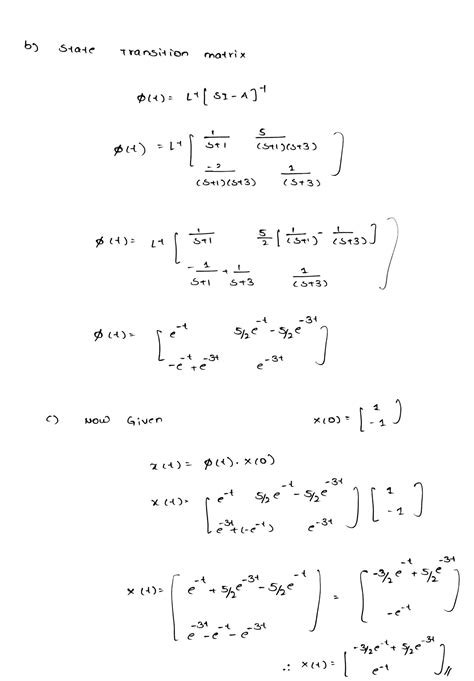 b) State transition matrix
φ(t) = L⁻¹[SI - A]⁻¹
φ(t) = L⁻¹ [ 1/(S+1) 5/((S+1)(S+3))
-2/((S+1)(S+3)) 1/(S+3) ]
φ(t) = L⁻¹ [ 1/(S+1) 5/2 [ 1/(S+1) - 1/(S+3) ]
-1/(S+1) + 1/(S+3) 1/(S+3) ]
φ(t) = [ e^-t 5/2 e^-t - 5/2 e^-3t
-e^-t + e^-3t e^-3t ]
c) Now Given x(0) = [ 1
-1 ]
x(t) = φ(t) . x(0)
x(t) = [ e^-t 5/2 e^-t - 5/2 e^-3t
e^-3t + (-e^-t) e^-3t ] [ 1
-1 ]
x(t) = [ e^-t + 5/2 e^-3t - 5/2 e^-t
e^-3t - e^-t - e^-3t ] = [ -3/2 e^-t + 5/2 e^-3t
-e^-t ]
∴ x(t) = [ -3/2 e^-t + 5/2 e^-3t
e^-t ] //